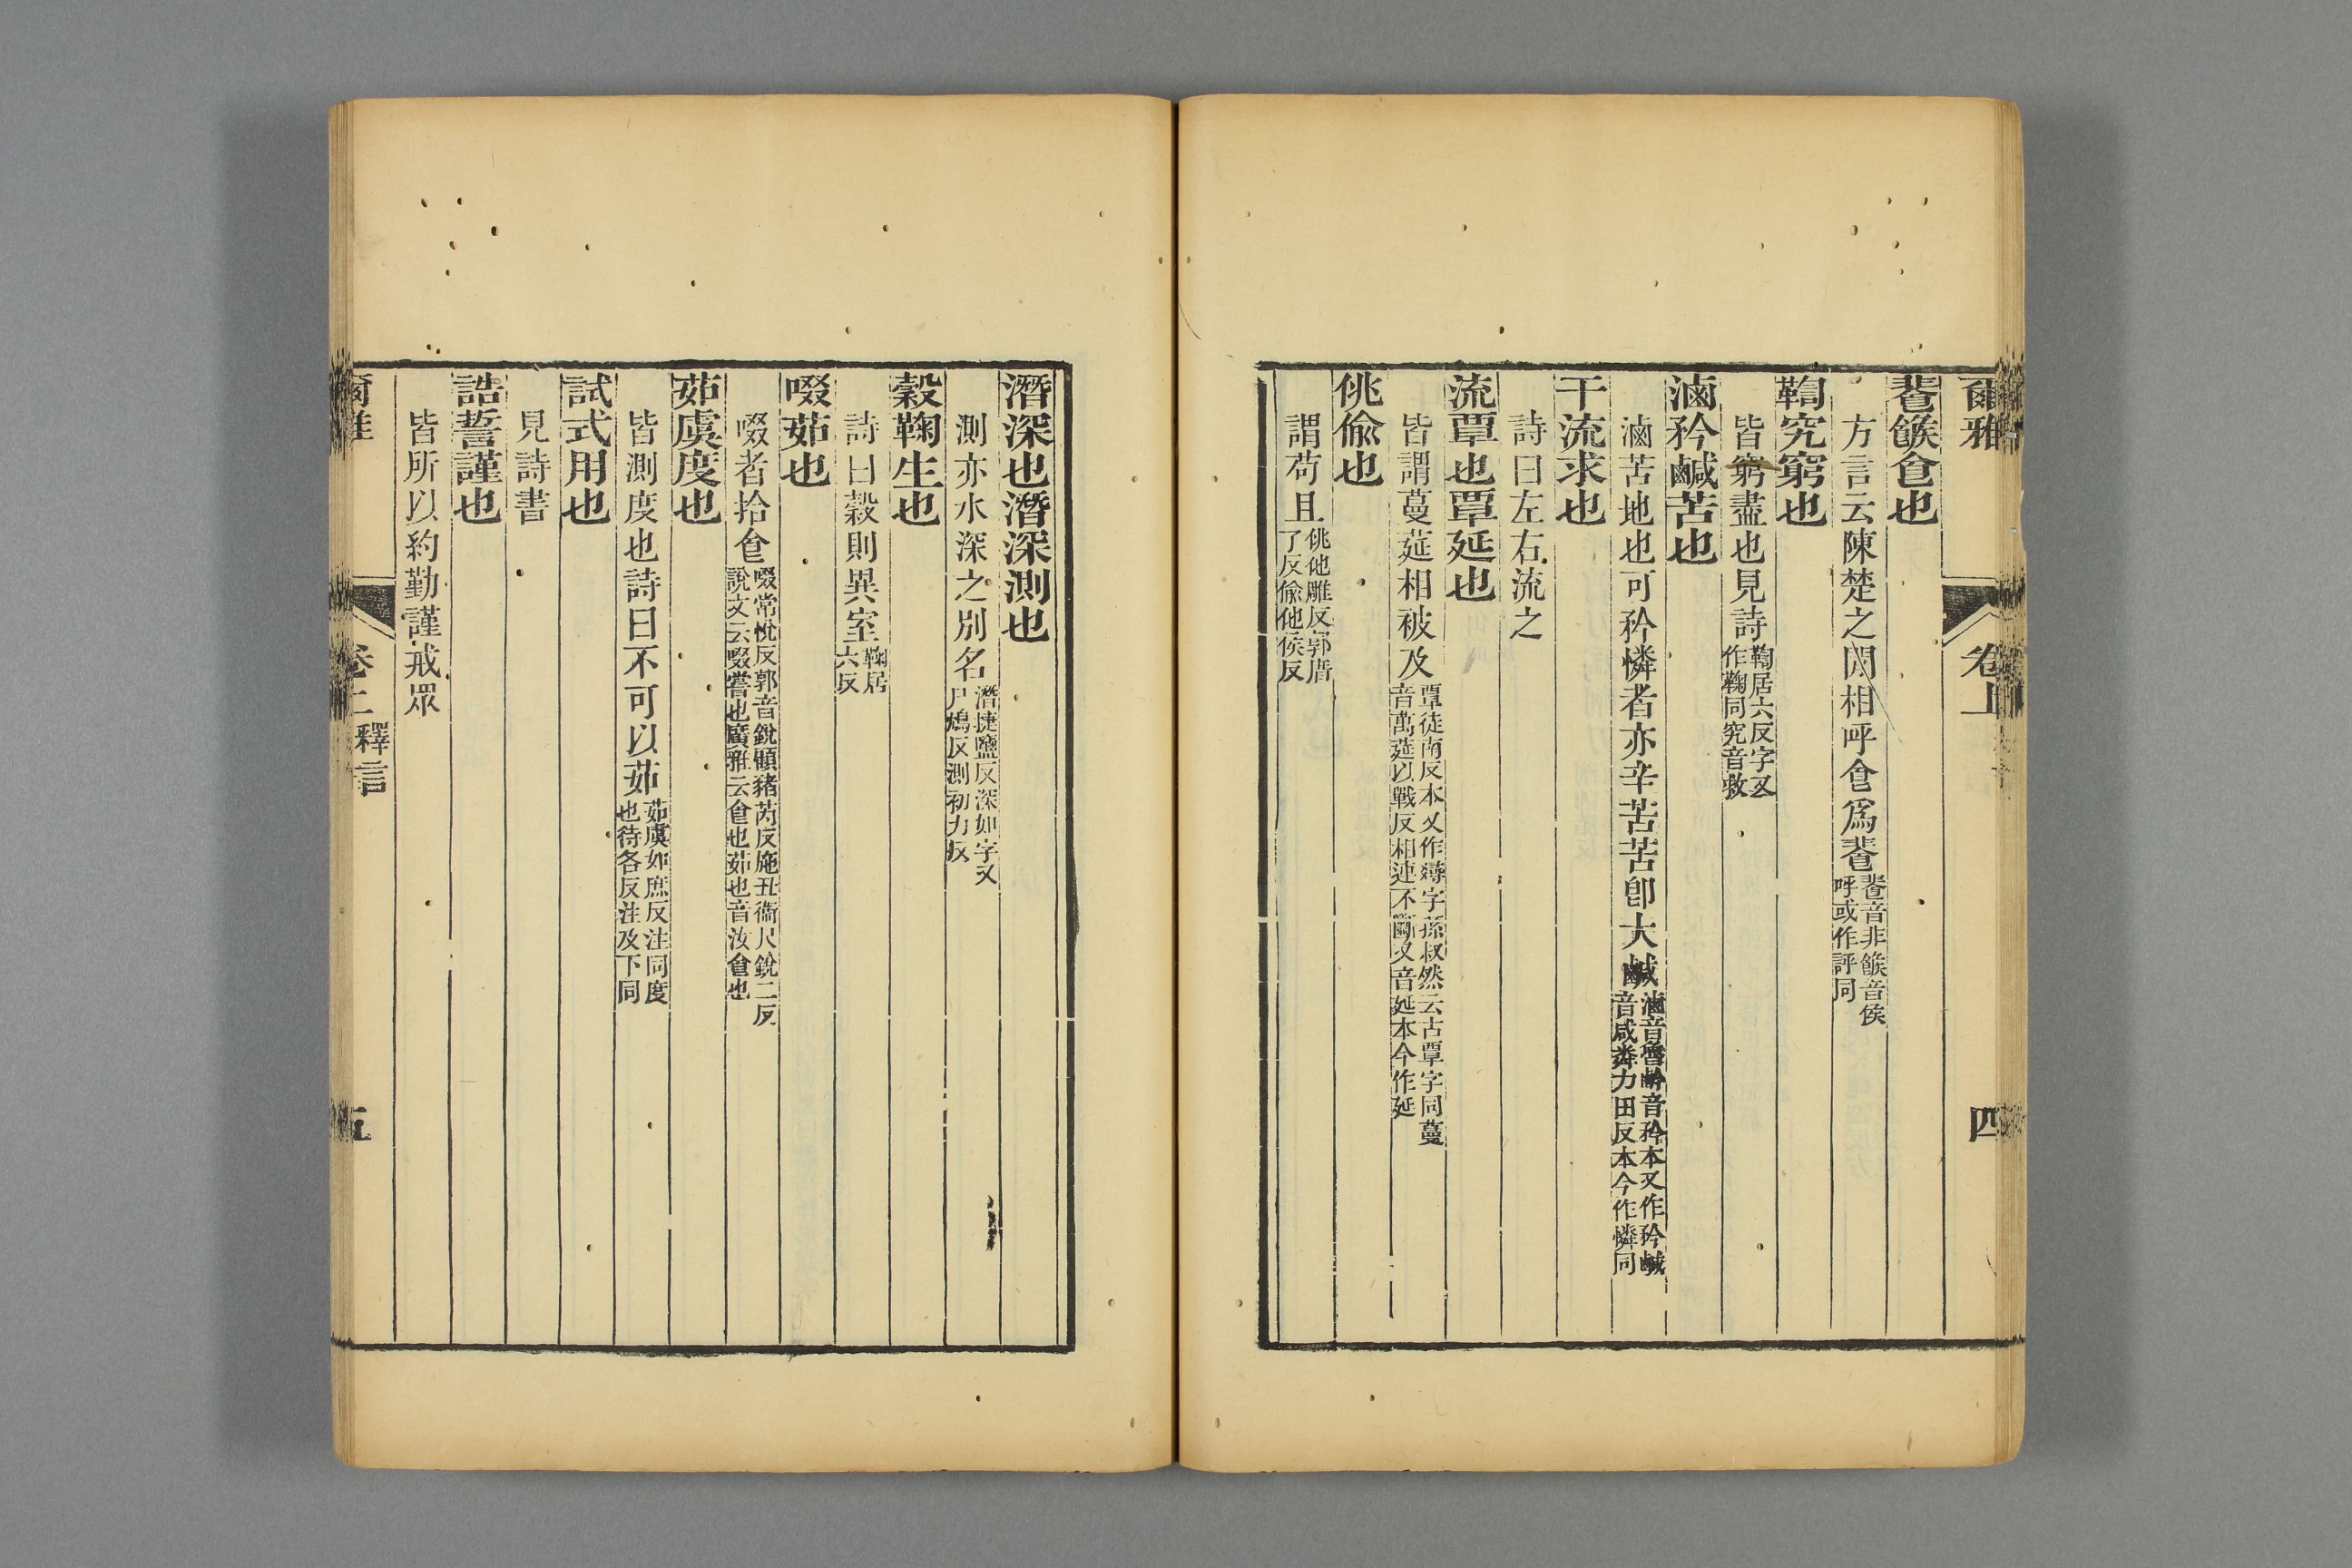 爾雅
卷上
四
餥餱食也
方言云陳楚之閒相呼食爲餥
餥音非餱音侯
呼或作評同
鞫究窮也
皆窮盡也見詩
鞫居六反字又
作鞠同究音救
滷矜鹹苦也
滷苦地也可矜憐者亦辛苦苦卽大鹹
滷音魯矜音矜本又作矜鹹
音咸粦力田反本今作憐同
干流求也
詩曰左右流之
流覃也覃延也
皆謂蔓莚相被及
覃徒南反本又作𧟹字孫叔然云古覃字同蔓
音萬莚以戰反相連不斷又音延本今作延
佻偷也
謂苟且
佻他雕反郭唐
了反偷他侯反
潛深也潛深測也
測亦水深之別名
潛捷鹽反深如字又
尸鴆反測初力反
穀鞠生也
詩曰穀則異室
鞠居
六反
啜茹也
啜者拾食
啜常悅反郭音銳顧豬芮反施丑衞尺銳二反
說文云啜嘗也廣雅云食也茹也音汝食也
茹虞度也
皆測度也詩曰不可以茹
茹虞如庶反注同度
也待各反注及下同
試式用也
見詩書
誥誓謹也
皆所以約勤謹戒眾
爾雅
卷上
釋言
五